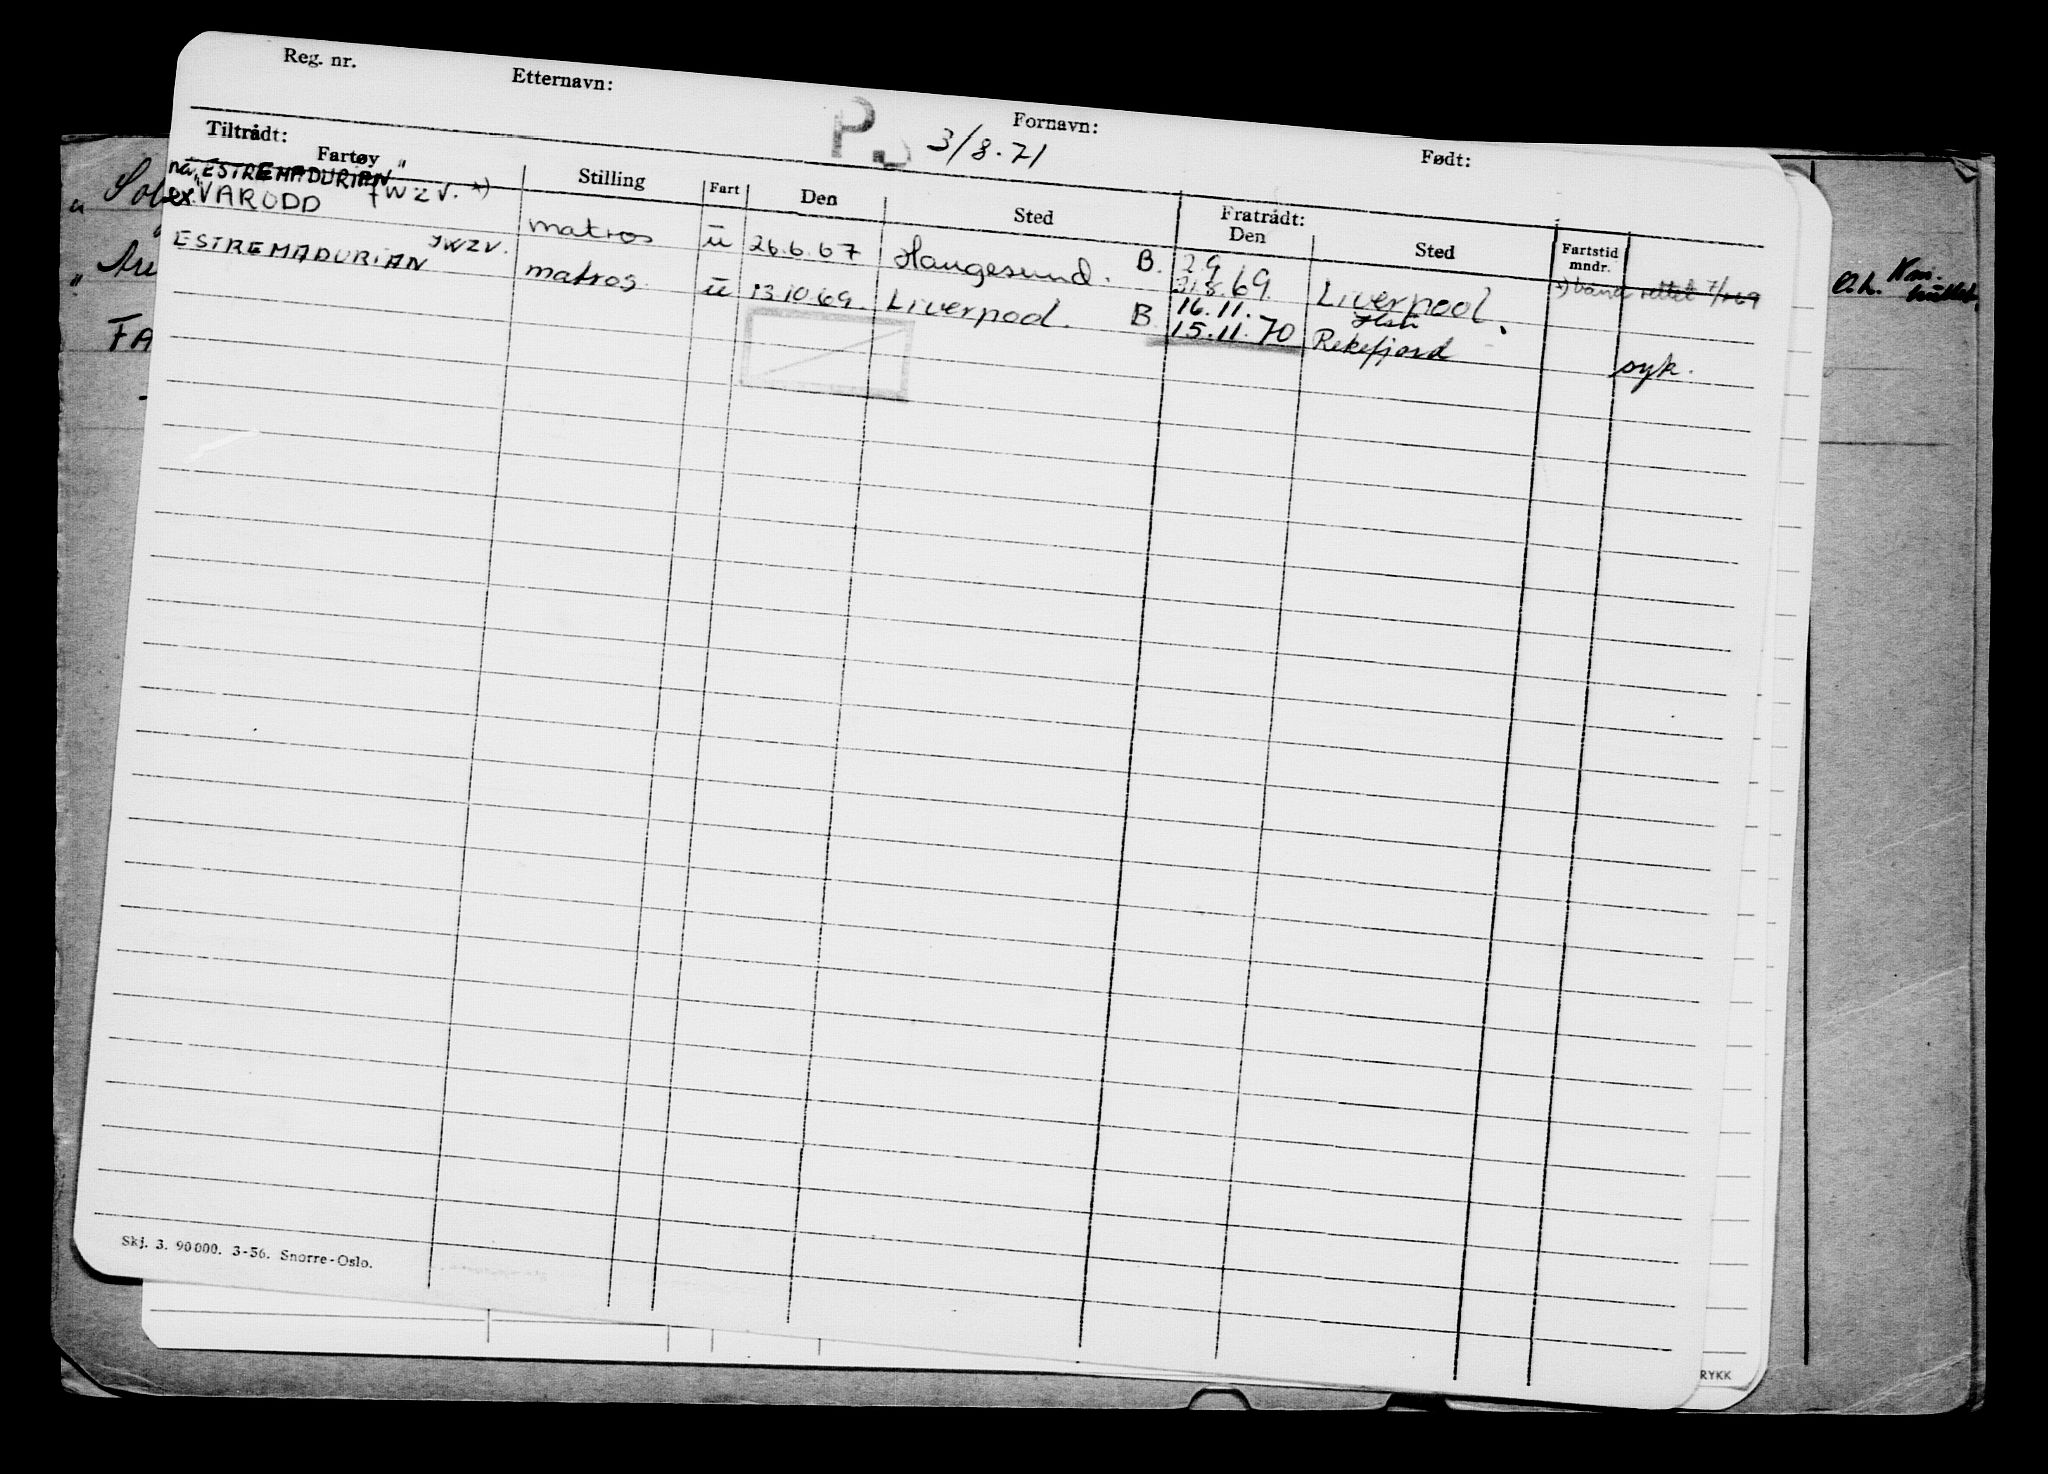 Reg. nr. Etternavn: Fornavn: Født:
P. 3/8.71
Tiltrådt: Fratrådt:
Fartøy Stilling Fart Den Sted Den Sted Fartstid mndr.
nå "ESTREMADURIAN"
ex VARODD JWZV. *) matros u 26.6.67 Haugesund. B. 29 Liverpool *) rettet
31.8.69
ESTREMADURIAN JWZV. matros u 13.10.69. Liverpool. B 16.11.
15.11.70 Rekefjord syk.
FA
Skj. 3. 90000. 3-56. Snorre-Oslo.
RYKK